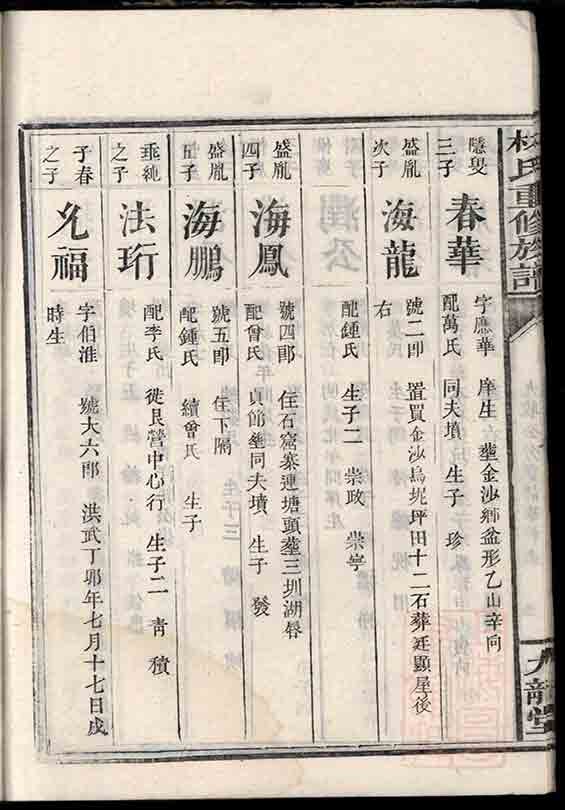 林氏重修族譜
九龍堂
隱叟
三子
春華
字應華 庠生 塟金沙鄉盆形乙山辛向
配萬氏 同夫墳 生子 珍
盛胤
次子
海龍
號二郎 置買金沙烏坭坪田十二石葬廷顕屋後
右
配鍾氏 生子二 崇政 崇寕
盛胤
四子
海鳳
號四郎 住石窟寨連塘頭塟三圳湖唇
配曾氏 貞節塟同夫墳 生子 發
盛胤
五子
海鵬
號五郎 住下隔
配鍾氏 續曾氏 生子
垂純
之子
法珩
配李氏 徙艮營中心行 生子二 青 積
子春
之子
允福
字伯淮 號大六郎 洪武丁卯年七月十七日戌
時生